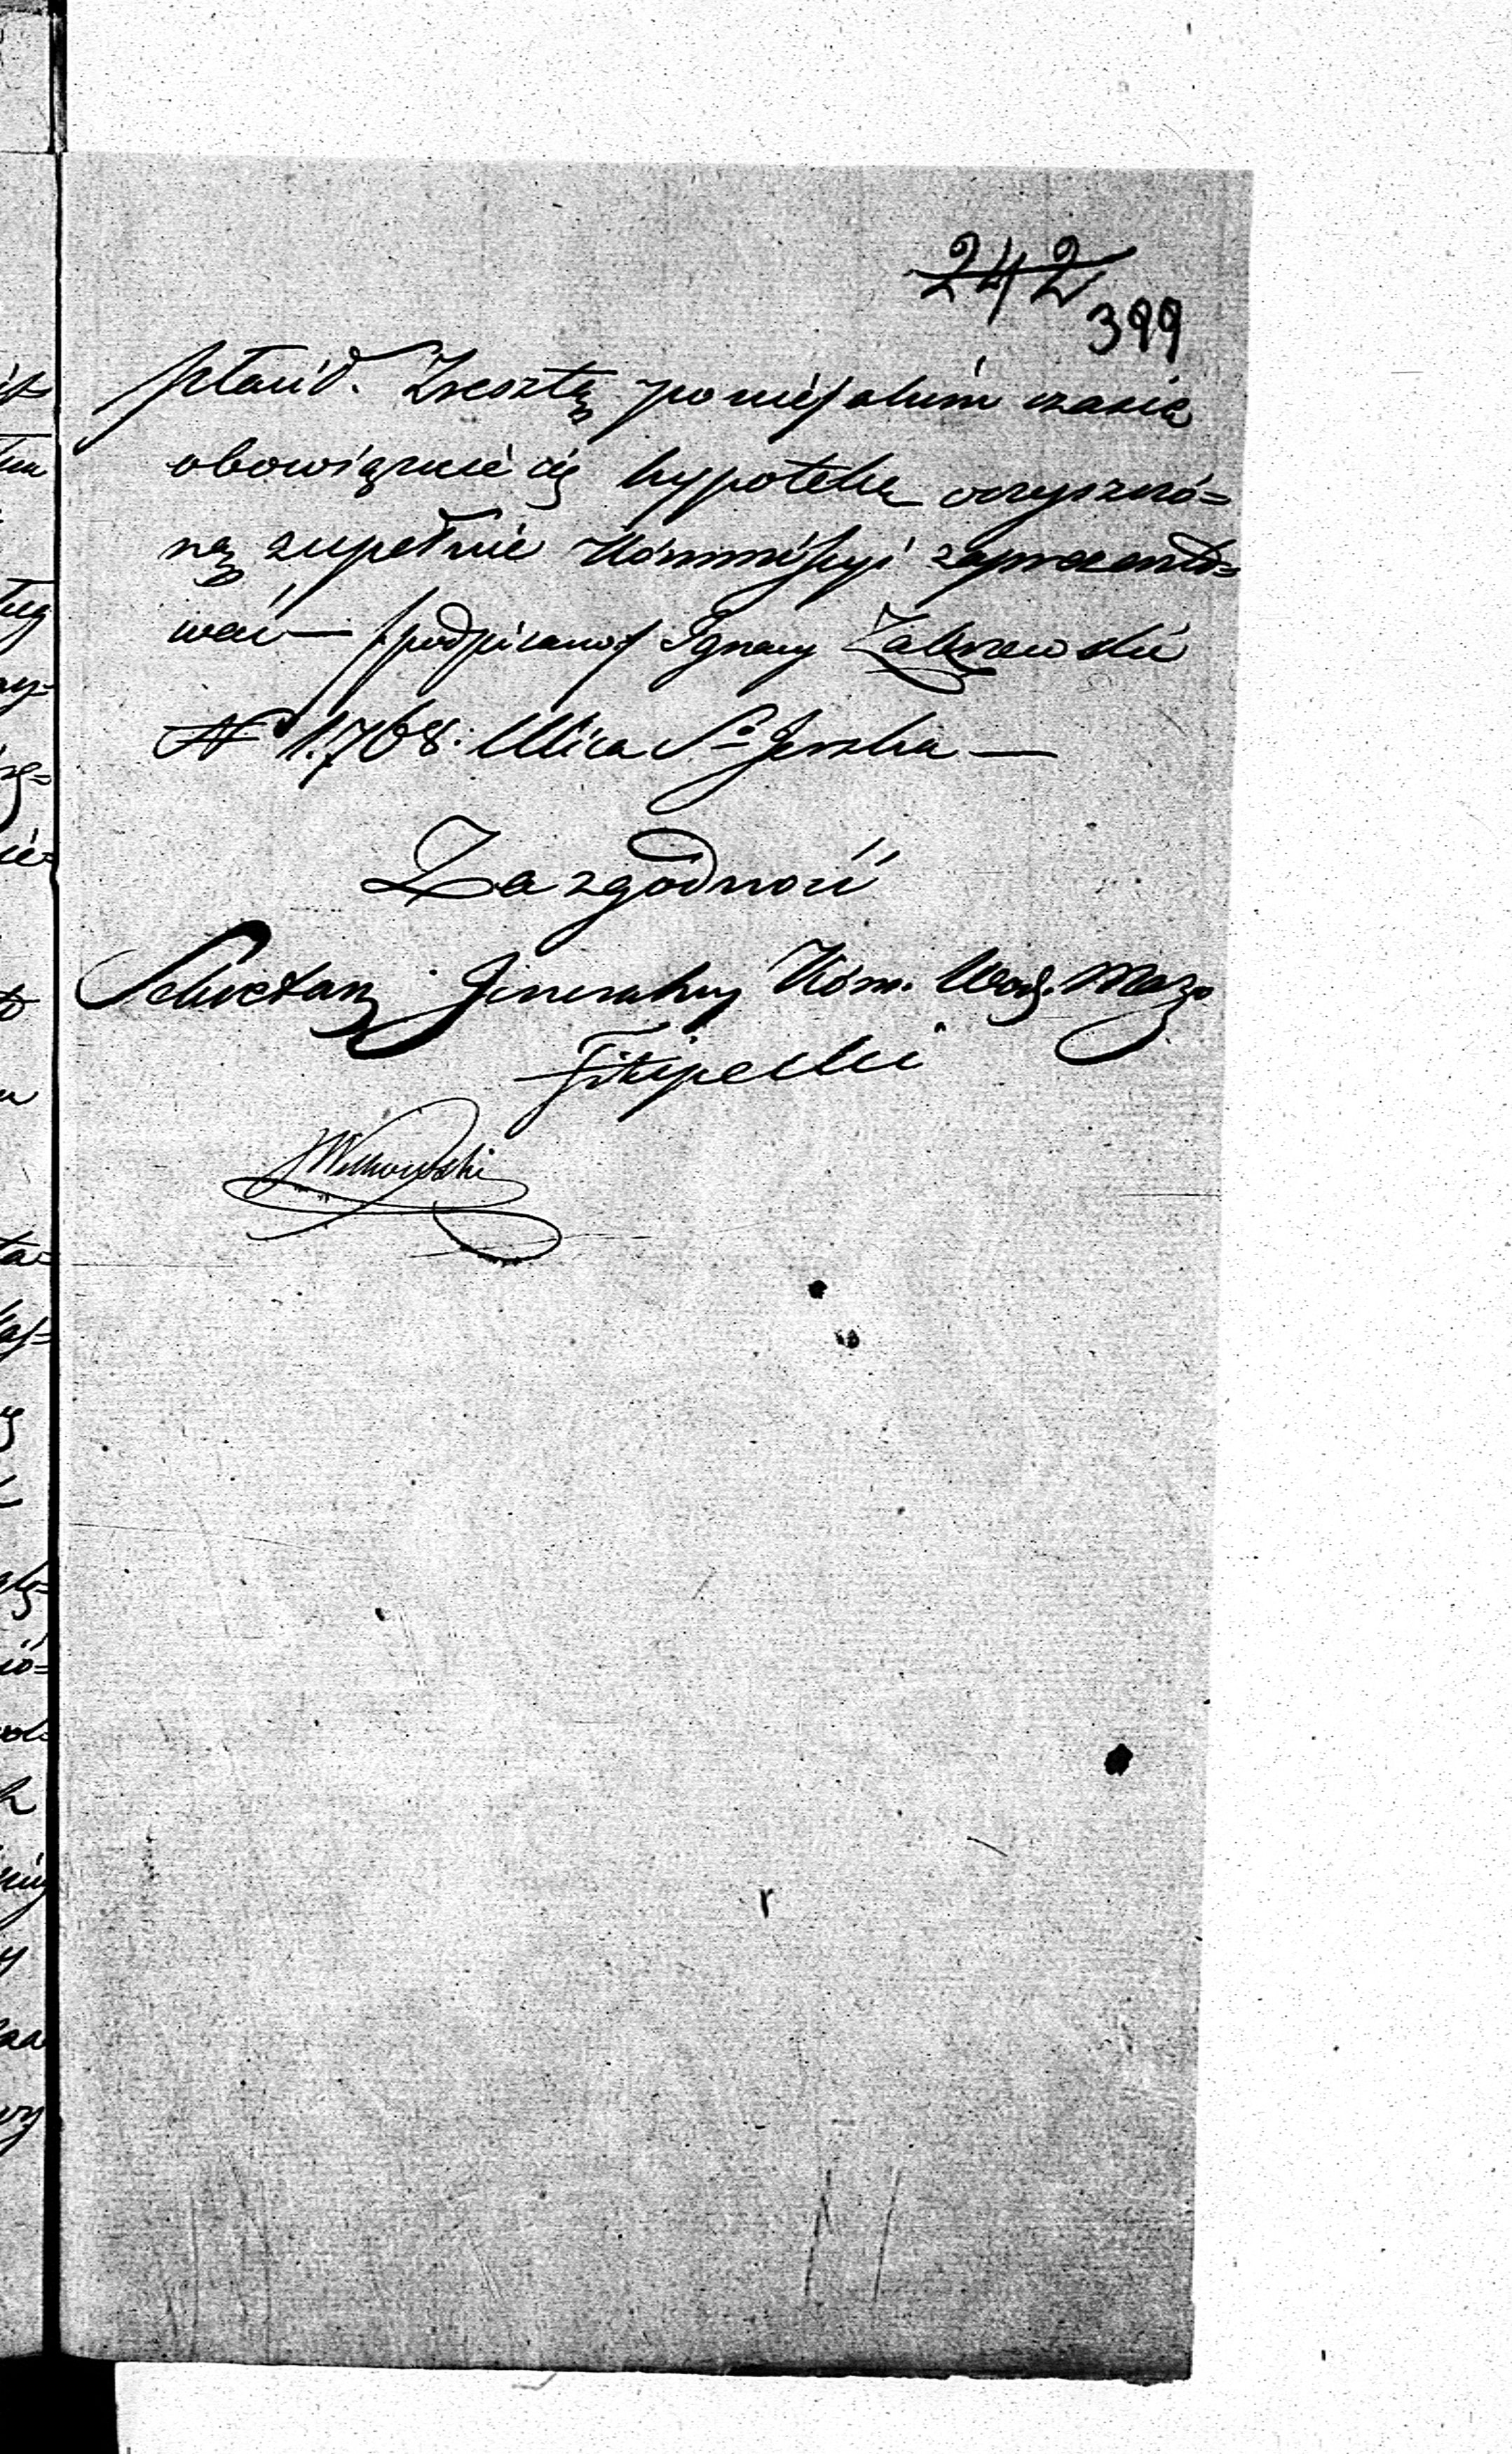 242
399
płacić. Zresztą po niejakim czasie
obowiązuie się hypotekę oczyszczo=
ną zupełnie Kommissyi zaprezento=
wać — /podpisano/ Ignacy Zakrzewski
N° 1.768. Ulica S° Jerska —
Za zgodność
Sekretarz Jeneralny Kom. Woj. Mazo
Filipecki